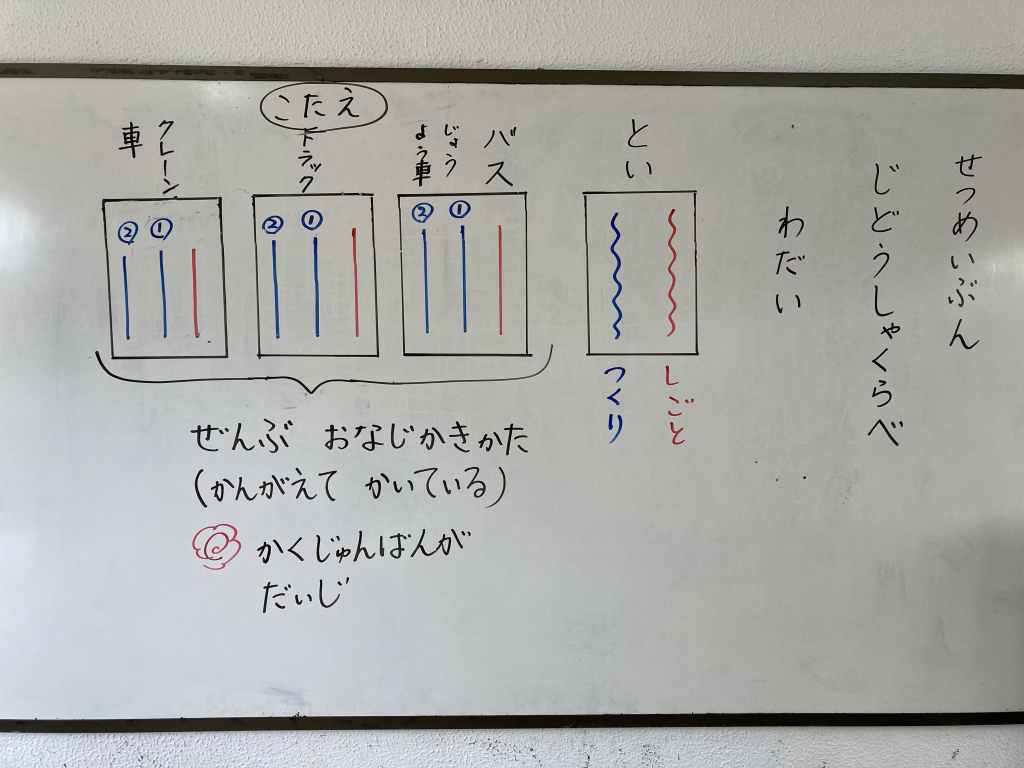 せつめいぶん
じどうしゃくらべ
わだい
とい
しごと
つくり
こたえ
バス
じょう
よう車
① ②
トラック
① ②
クレーン
車
① ②
ぜんぶ おなじかきかた
(かんがえて かいている)
かくじゅんばんが
だいじ